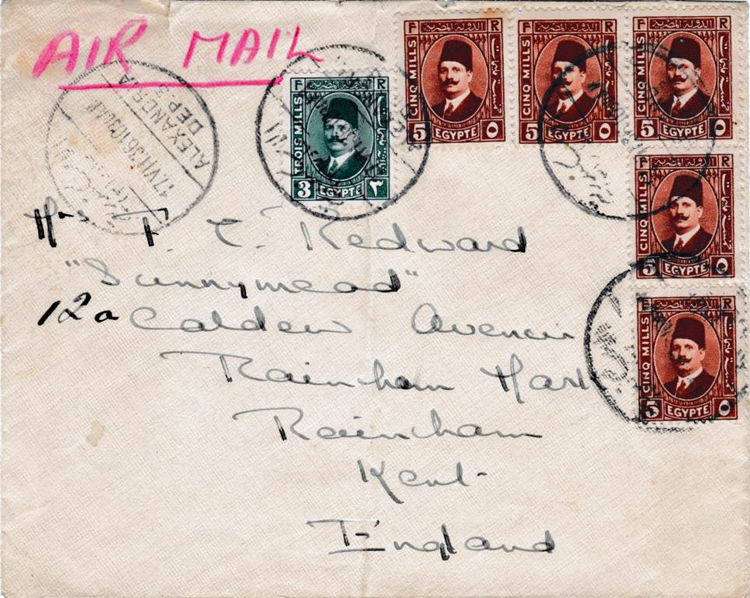 AIR MAIL
ALEXANDRIA
DEP 3
17 VII.36
F الدولة المصرية R
CINQ MILLS
5 EGYPTE ٥
F الدولة المصرية R
CINQ MILLS
5 EGYPTE ٥
F الدولة المصرية R
CINQ MILLS
5 EGYPTE ٥
F R
TROIS MILLS
3 EGYPTE ٣
F الدولة المصرية R
CINQ MILLS
5 EGYPTE ٥
F R
CINQ MILLS
5 EGYPTE ٥
F. C. Redward
"Sunnymead"
12a Calder Avenue
Rainham Mark
Rainham
Kent
England